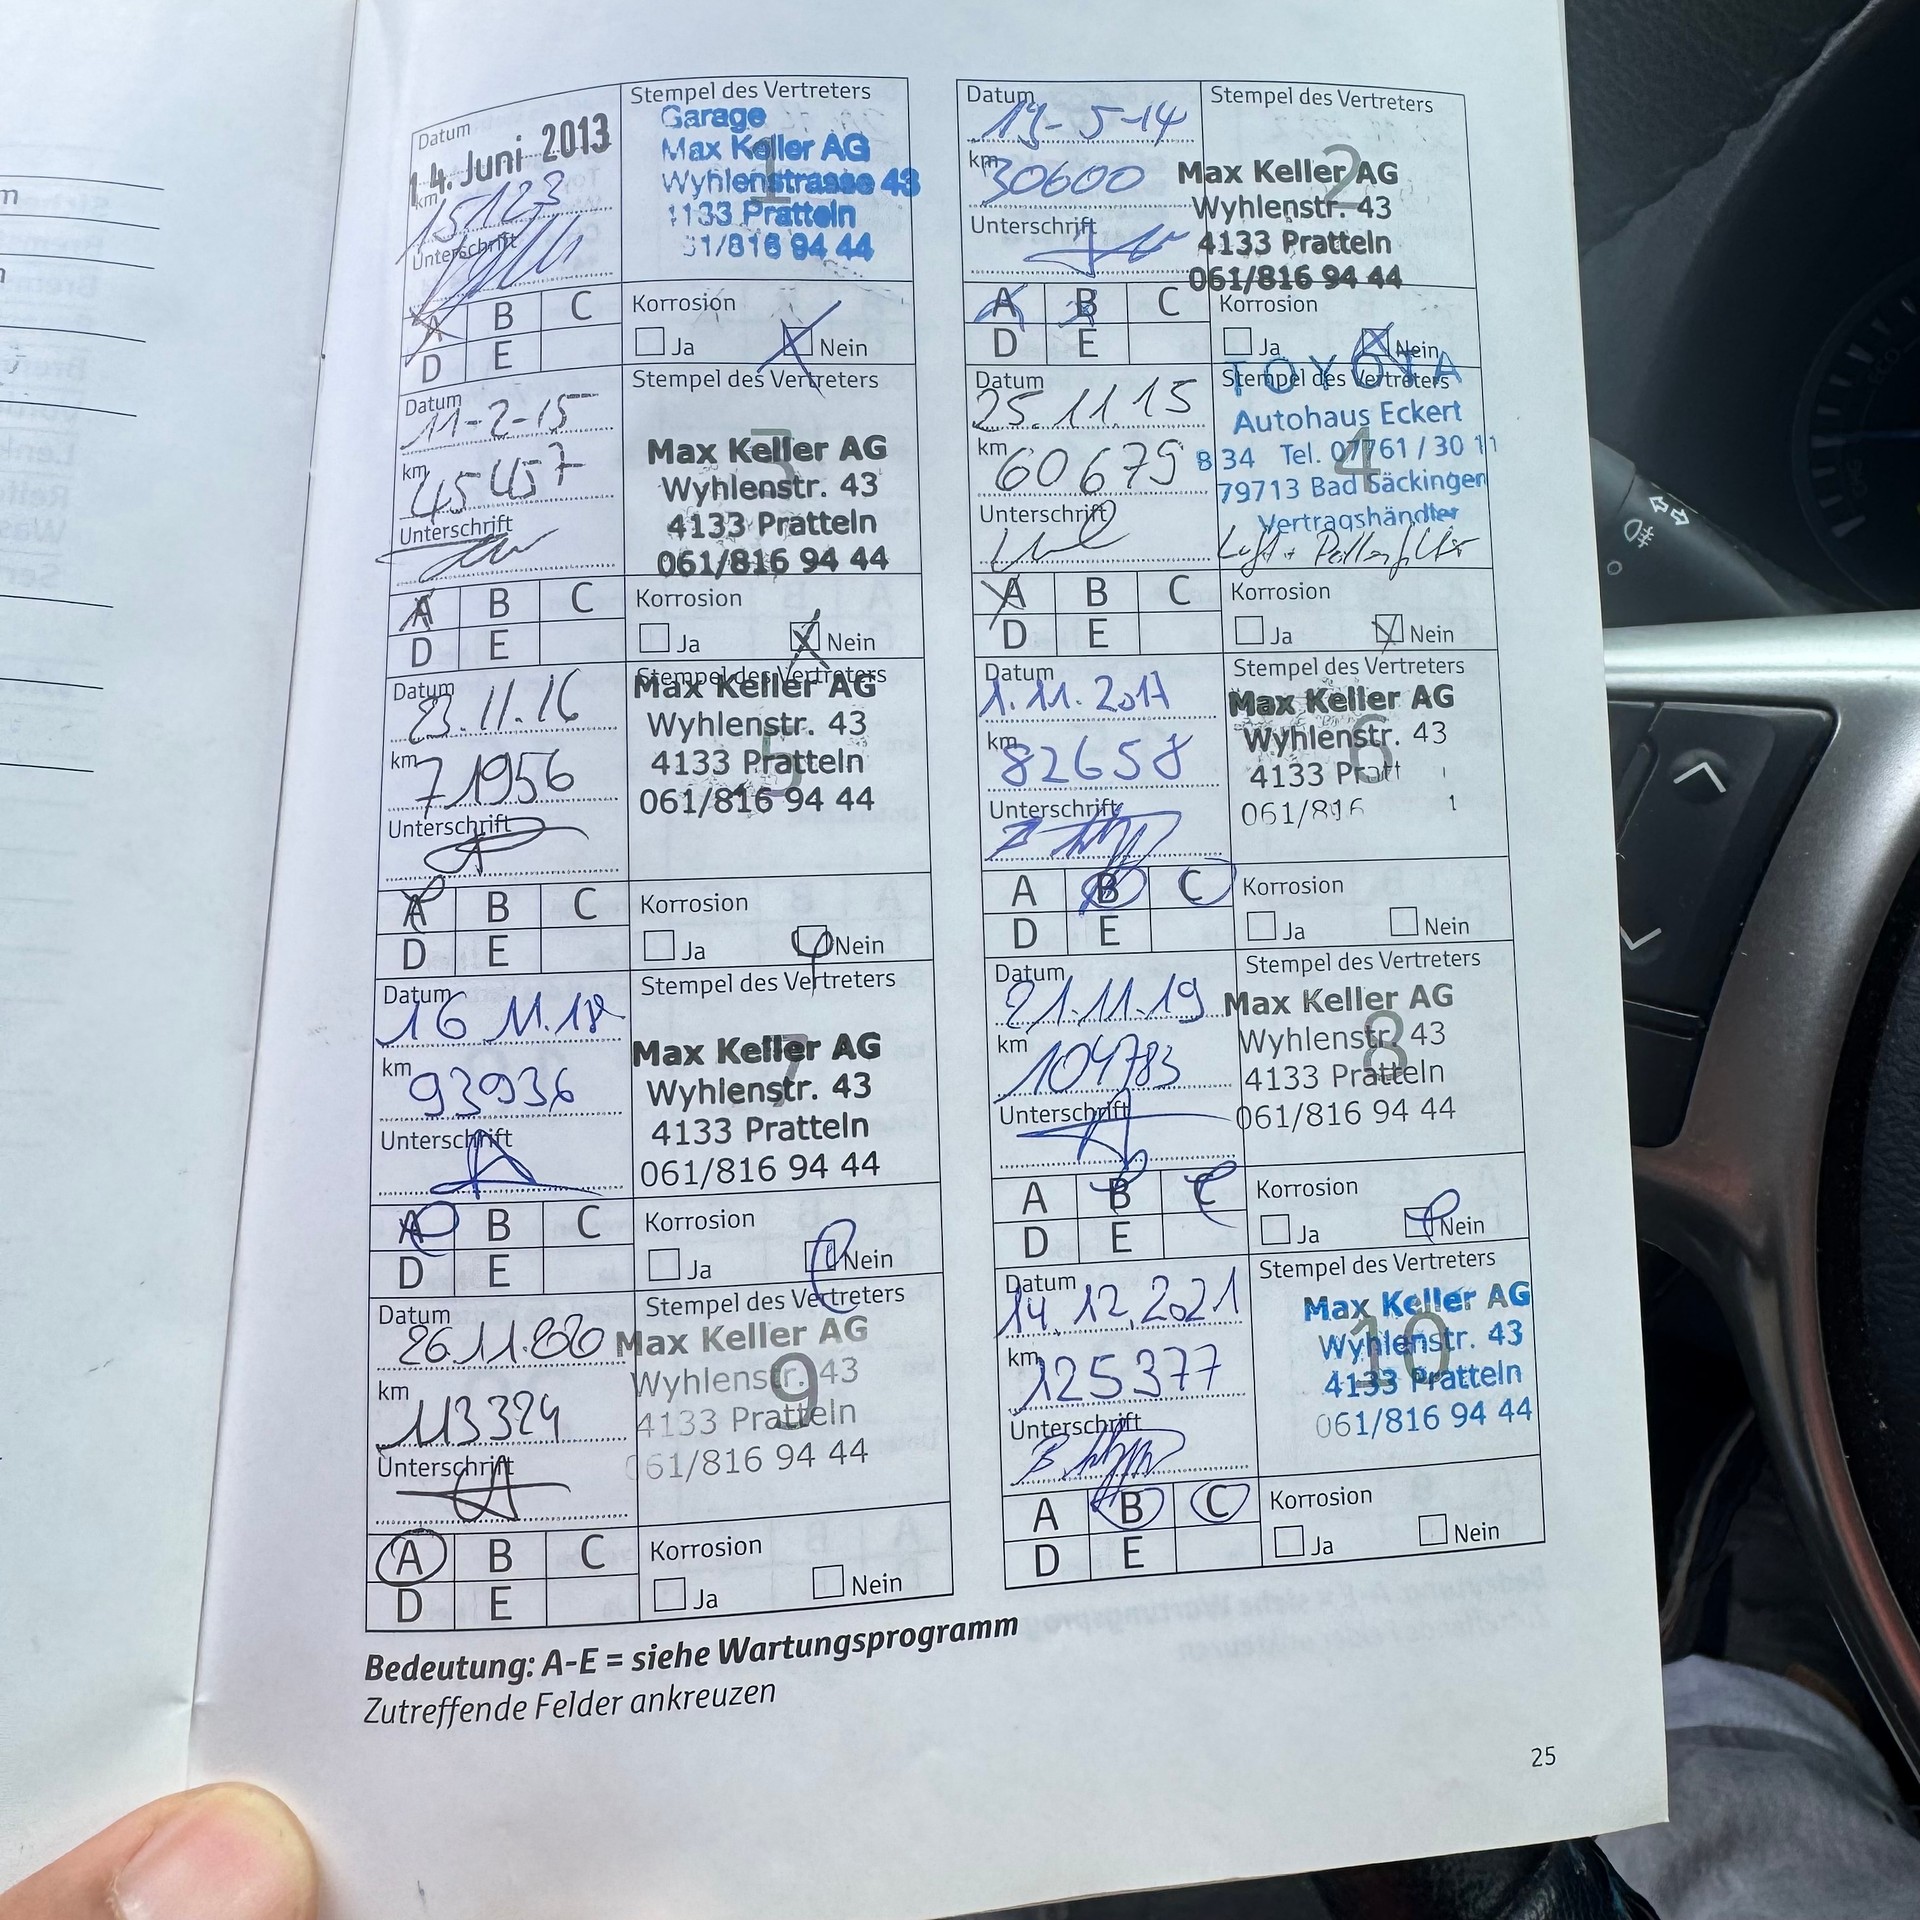 Datum
14. Juni 2013
km
15123
Unterschrift
Stempel des Vertreters
1
Garage
Max Keller AG
Wyhlenstrasse 43
4133 Pratteln
61/816 94 44
A B C
D E
Korrosion
Ja Nein
Datum
19-5-14
km
30600
Unterschrift
Stempel des Vertreters
2
Max Keller AG
Wyhlenstr. 43
4133 Pratteln
061/816 94 44
A B C
D E
Korrosion
Ja Nein
Datum
11-2-15
km
45457
Unterschrift
Stempel des Vertreters
3
Max Keller AG
Wyhlenstr. 43
4133 Pratteln
061/816 94 44
A B C
D E
Korrosion
Ja Nein
Datum
25.11.15
km
60679
Unterschrift
Stempel des Vertreters
4
TOYOTA
Autohaus Eckert
834 Tel. 07761 / 30 11
79713 Bad Säckingen
Vertragshändler
Luft + Pollenfilter
A B C
D E
Korrosion
Ja Nein
Datum
23.11.16
km
71956
Unterschrift
Stempel des Vertreters
5
Max Keller AG
Wyhlenstr. 43
4133 Pratteln
061/816 94 44
A B C
D E
Korrosion
Ja Nein
Datum
1.11.2017
km
82658
Unterschrift
Stempel des Vertreters
6
Max Keller AG
Wyhlenstr. 43
4133 Pratt
061/816
A B C
D E
Korrosion
Ja Nein
Datum
16 11.18
km
93936
Unterschrift
Stempel des Vertreters
7
Max Keller AG
Wyhlenstr. 43
4133 Pratteln
061/816 94 44
A B C
D E
Korrosion
Ja Nein
Datum
21.11.19
km
104783
Unterschrift
Stempel des Vertreters
8
Max Keller AG
Wyhlenstr. 43
4133 Pratteln
061/816 94 44
A B C
D E
Korrosion
Ja Nein
Datum
26.11.2020
km
113324
Unterschrift
Stempel des Vertreters
9
Max Keller AG
Wyhlenstr. 43
4133 Pratteln
061/816 94 44
A B C
D E
Korrosion
Ja Nein
Datum
14.12.2021
km
125377
Unterschrift
Stempel des Vertreters
10
Max Keller AG
Wyhlenstr. 43
4133 Pratteln
061/816 94 44
A B C
D E
Korrosion
Ja Nein
Bedeutung: A-E = siehe Wartungsprogramm
Zutreffende Felder ankreuzen
25